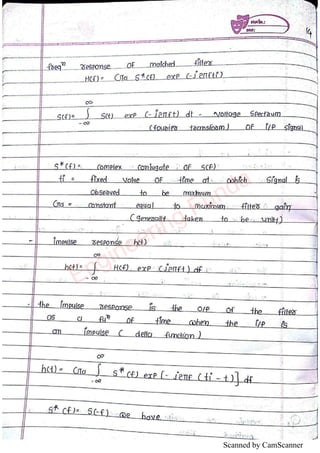 14
freqⁿ response of matched filter
H(f) = Gna S*(f) exp (-jeπft)
∞
S(f) = ∫ S(t) exp (-jeπft) dt - Voltage Spectrum
-∞
(fourier transform) OF i/p signal
S*(f) = Complex Conjugate OF S(f)
ti = fixed value OF time at which Signal is
Observed to be maximum
Gna = constant equal to maximum filter gain
(generally taken to be unity)
- impulse response h(t)
∞
h(t) = ∫ H(f) exp (jeπft) df
-∞
- the impulse response is the O/P OF the filter
as a fuⁿ of time when the i/p is
an impulse ( delta function )
∞
h(t) = Gna ∫ S*(f) exp [- jeπf (ti - t)] df
-∞
S*(f) = S(-f) we have
Engineering Funda
Scanned by CamScanner